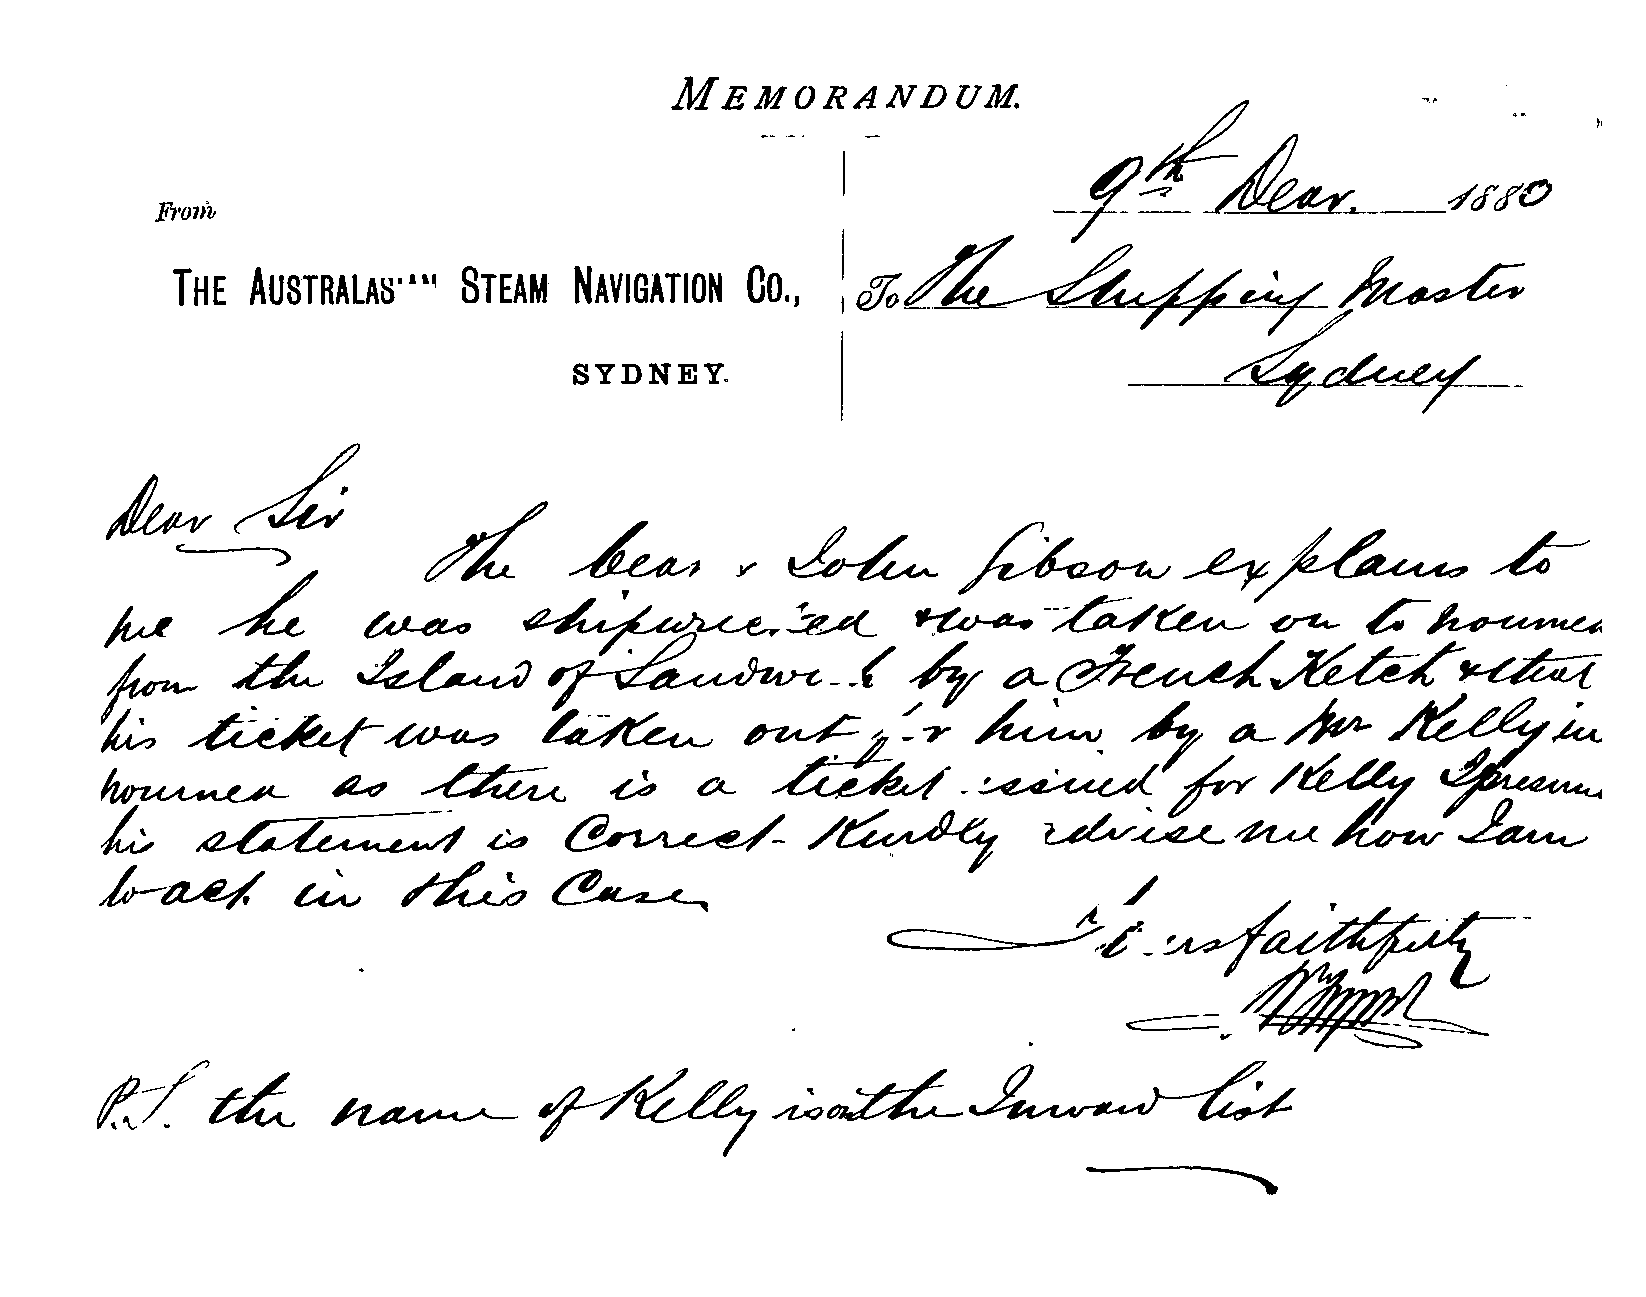 MEMORANDUM.
9th Decr. 1880
From
THE AUSTRALASIAN STEAM NAVIGATION CO.,
To The Shipping Master
SYDNEY.
Sydney
Dear Sir
The bearer John Gibson explains to
me he was shipwrecked & was taken on to Noumea
from the Island of Sandwich by a French Ketch & that
his ticket was taken out for him by a Mr Kelly in
Noumea as there is a ticket issued for Kelly I presume
his statement is correct - Kindly advise me how I am
to act in this case
Yours faithfully
P.S. the name of Kelly is on the Inward list